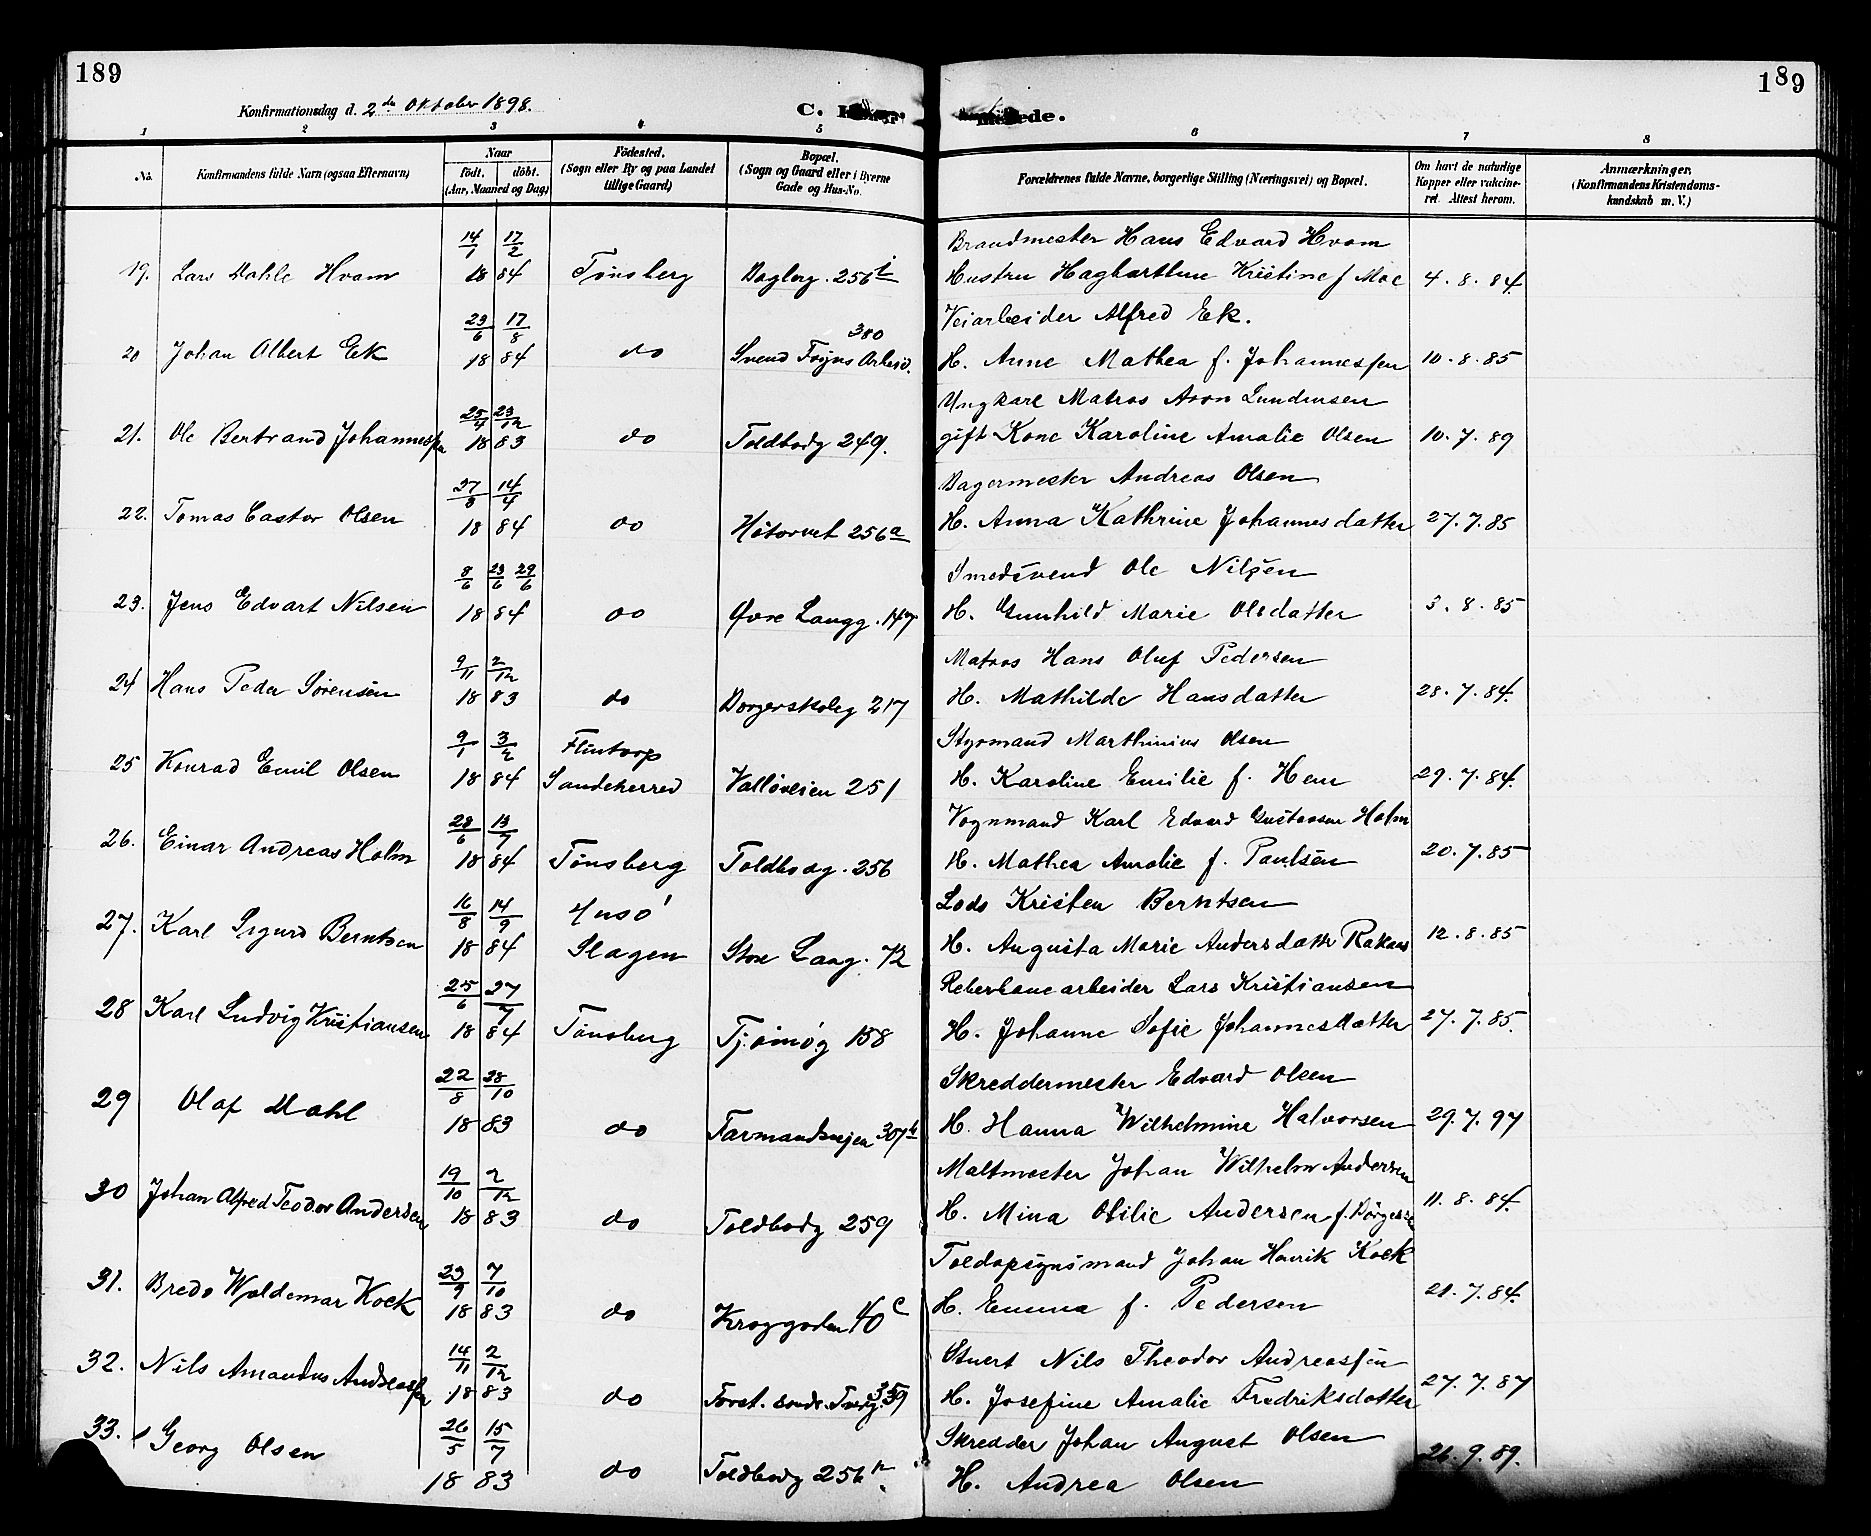 189
189
Konfirmationsdag d. 2den Oktober 1898.
C.
1 2 3 4 5 6 7 8
No. Konfirmandens fulde Navn (ogsaa Efternavn) Naar født. døbt. (Aar, Maaned og Dag) Fødested. (Sogn eller By og paa Landet tillige Gaard) Bopæl. (Sogn og Gaard eller i Byerne Gade og Hus-No. Forældrenes fulde Navne, borgerlige Stilling (Næringsvei) og Bopæl. Om havt de naturlige Kopper eller vakcineret. Attest herom. Anmærkninger. (Konfirmandens Kristendomskundskab m. V.)
14/1 17/2 Brandmester Hans Edvard Hvam
19. Lars Dahle Hvam 18 84 Tønsberg 256 Hustru Hagbarthine Kristine f Moe 4.8.84.
23/6 17/8 380 Veiarbeider Alfred Ek.
20 Johan Albert Ek 18 84 do Svend Foyns Arbeid. H. Anne Mathea f. Johannessen 10.8.85
25/4 23/12 Ungkarl Matros Aron Lundensen
21. Ole Bertrand Johannessen 18 83 do Toldbodg 249. gift Kone Karoline Amalie Olsen 10.7.89
27/3 14/4 Bagermester Andreas Olsen
22. Tomas Castor Olsen 18 84 do Høtorvet 256a H. Anna Kathrine Johannesdatter 27.7.85
8/6 23/6 29/6 Smedsvend Ole Nilsen
23. Jens Edvart Nilsen 18 84 do Øvre Langg. 147 H. Gunhild Marie Olsdatter 3.8.85
9/11 2/12 Matros Hans Oluf Pedersen
24 Hans Peder Sørensen 18 83 do Borgerskoleg 217 H. Mathilde Hansdatter 28.7.84.
9/1 3/2 Flintorp Styrmand Marthinius Olsen
25 Konrad Emil Olsen 18 84 Sandeherred Valløveien 251 H. Karoline Emilie f. Hem 29.7.84.
28/6 13/7 Vognmand Karl Edvard Gustavsen Holm
26. Einar Andreas Holm 18 84 Tønsberg Toldbodg. 256 H. Mathea Amalie f. Paulsen 20.7.85
16/8 14/9 Husø Lods Kristen Berntsen
27. Karl Sigurd Berntsen 18 84 Slagen Store Lang. 72 H. Augusta Marie Andersdatter 12.8.85
25/6 27/7 Reberbanearbeider Lars Kristiansen
28 Karl Ludvig Kristiansen 18 84 Tønsberg Tjømøg 158 H. Johanne Sofie Johannesdatter 27.7.85.
22/8 28/10 Skreddermester Edvard Olsen
29 Olaf Dahl 18 83 do Farmandsvejen 307b H. Hanna Wilhelmine Halvorsen 29.7.97
19/10 2/12 Maltmester Johan Wilhelm Andersen
30 Johan Alfred Teodor Andersen 18 83 do Toldbodg 259 H. Mina Otilie Andersen f. 11.8.84.
23/9 7/10 Toldopsynsmand Johan Henrik Kock
31. Bredo Woldemar Kock 18 83 do Kroggaden 40c H. Emma f. Pedersen 21.7.84.
14/11 2/12 Stuert Nils Theodor Andreassen
32. Nils Amandus Andreassen 18 83 do H. Josefine Amalie Fredriksdatter 27.7.87
26/5 15/7 Skredder Johan August Olsen
33. Georg Olsen 18 83 do Toldbodg 256 H. Andrea Olsen 26.9.89.